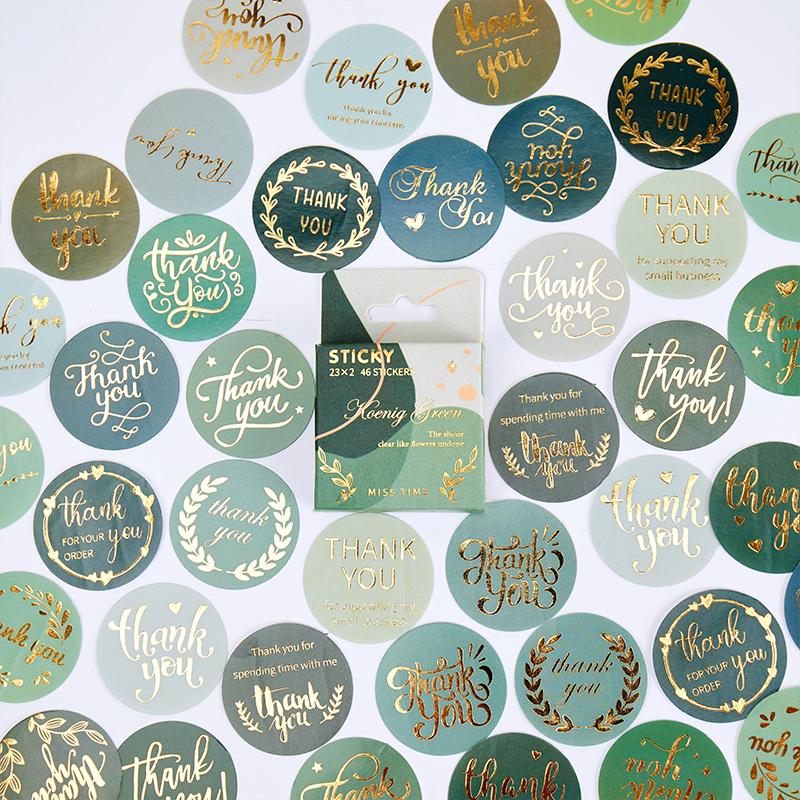 thank
you
thank you
Thank you for
raising your concerns
thank
you
THANK
YOU
Thank You
thank
you
THANK
YOU
Thank
You
Thank
you
THANK
YOU
for supporting my
small business
thank
You
thank
you
k you
you for
your concerns
Thank
you
Thank
you
STICKY
23×2 46 STICKERS
Koenig Green
The shore
clear like flowers undone
MISS TIME
Thank you for
spending time with me
thank
you
thank
you!
you
thank
FOR YOUR you
ORDER
thank
you
THANK
YOU
for supporting my
small business
Thank
You
thank
you
thank you
thank
you
Thank you for
spending time with me
thank
you
Thank
You
thank
you
thank
FOR YOUR you
ORDER
thank
you
thank
you!
Thank
you
thank
thank
you